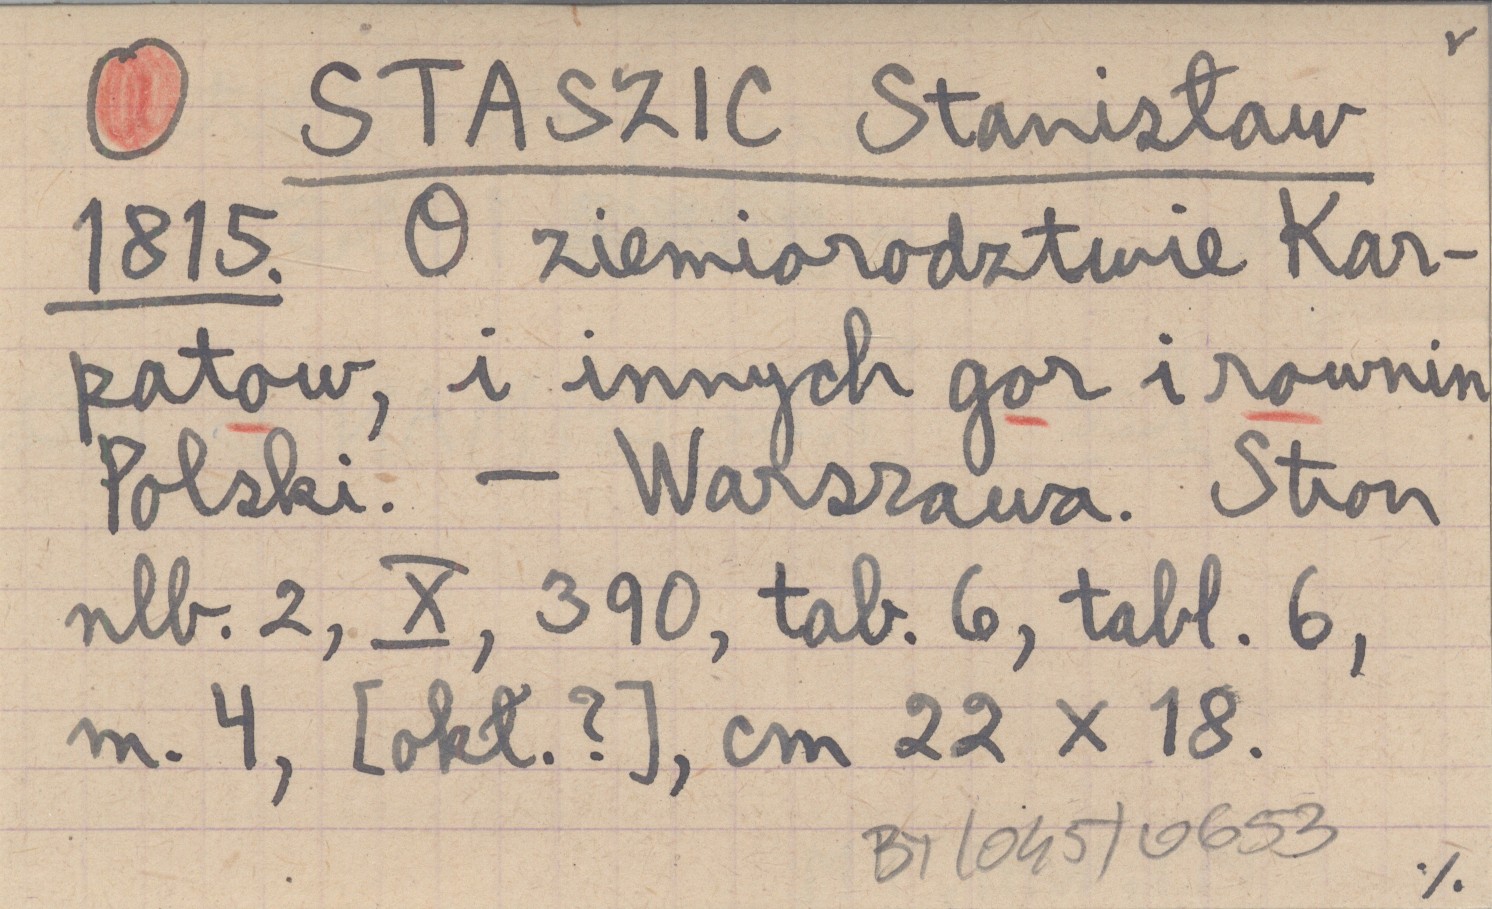 STASZIC Stanisław
1815. O ziemiorodztwie Kar-
patow, i innych gor i rownin
Polski. — Warszawa. Stron
nlb. 2, X, 390, tab. 6, tabl. 6,
m. 4, [okł.?], cm 22 x 18.
(045) 0653